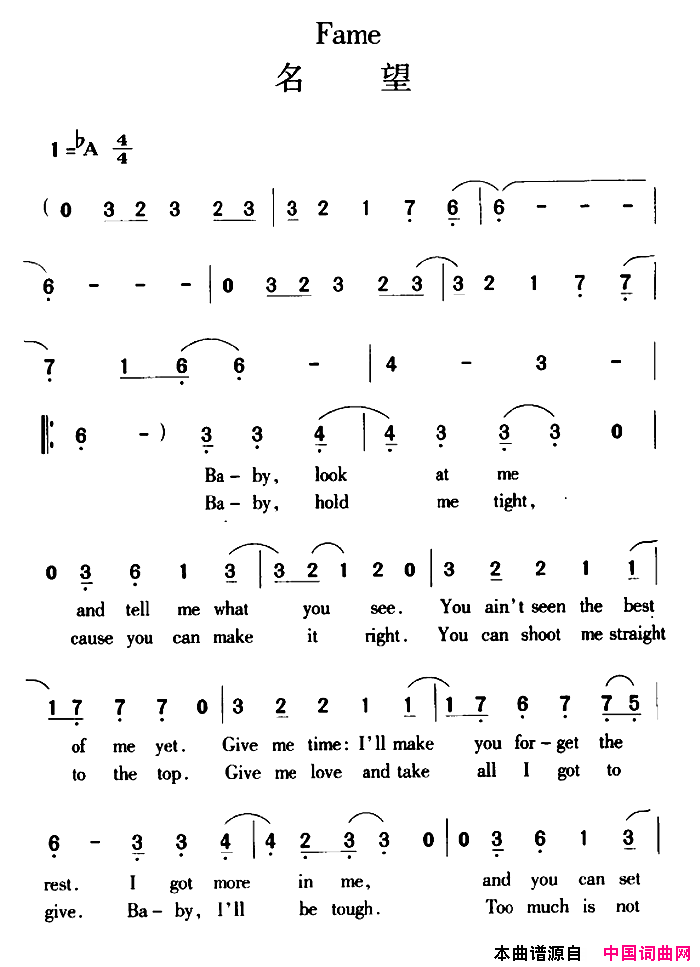 Fame
名 望
1=♭A 4/4
( 0 3 2 3 2 3 | 3 2 1 7 6 | 6 - - - |
6 - - - | 0 3 2 3 2 3 | 3 2 1 7 7 |
7 1 6 6 - | 4 - 3 - |
‖: 6 - ) 3 3 4 | 4 3 3 3 0 |
Ba- by, look at me
Ba- by, hold me tight,
0 3 6 1 3 | 3 2 1 2 0 | 3 2 2 1 1 |
and tell me what you see. You ain't seen the best
cause you can make it right. You can shoot me straight
1 7 7 7 0 | 3 2 2 1 1 | 1 7 6 7 7 5 |
of me yet. Give me time: I'll make you for-get the
to the top. Give me love and take all I got to
6 - 3 3 4 | 4 2 3 3 0 | 0 3 6 1 3 |
rest. I got more in me, and you can set
give. Ba- by, I'll be tough. Too much is not
本曲谱源自 中国词曲网